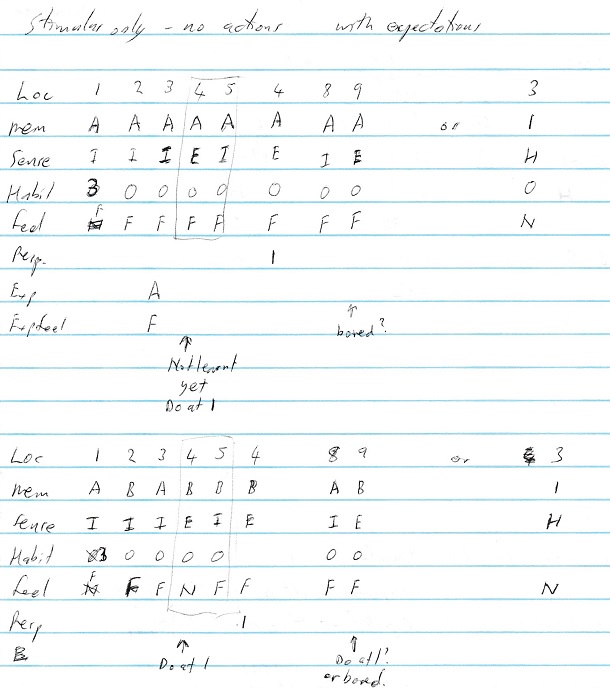 Stimular only - no actions with expectations
Loc 1 2 3 4 5 4 8 9 3
mem A A A A A A A A or 1
Sense I I I E I E I E H
Habit 3 0 0 0 0 0 0 0 0
Feel F F F F F F F F N
Resp. 1
Exp A
Exp feel F
↑ bored?
↑ Not learnt
yet
Do at 1
Loc 1 2 3 4 5 4 8 9 or 3
mem A B A B B B A B 1
Sense I I I E I E I E H
Habit 3 0 0 0 0 0 0
Feel F F F N F F F F N
1
↑ Do at 1 ↑ Do at 1?
or bored.